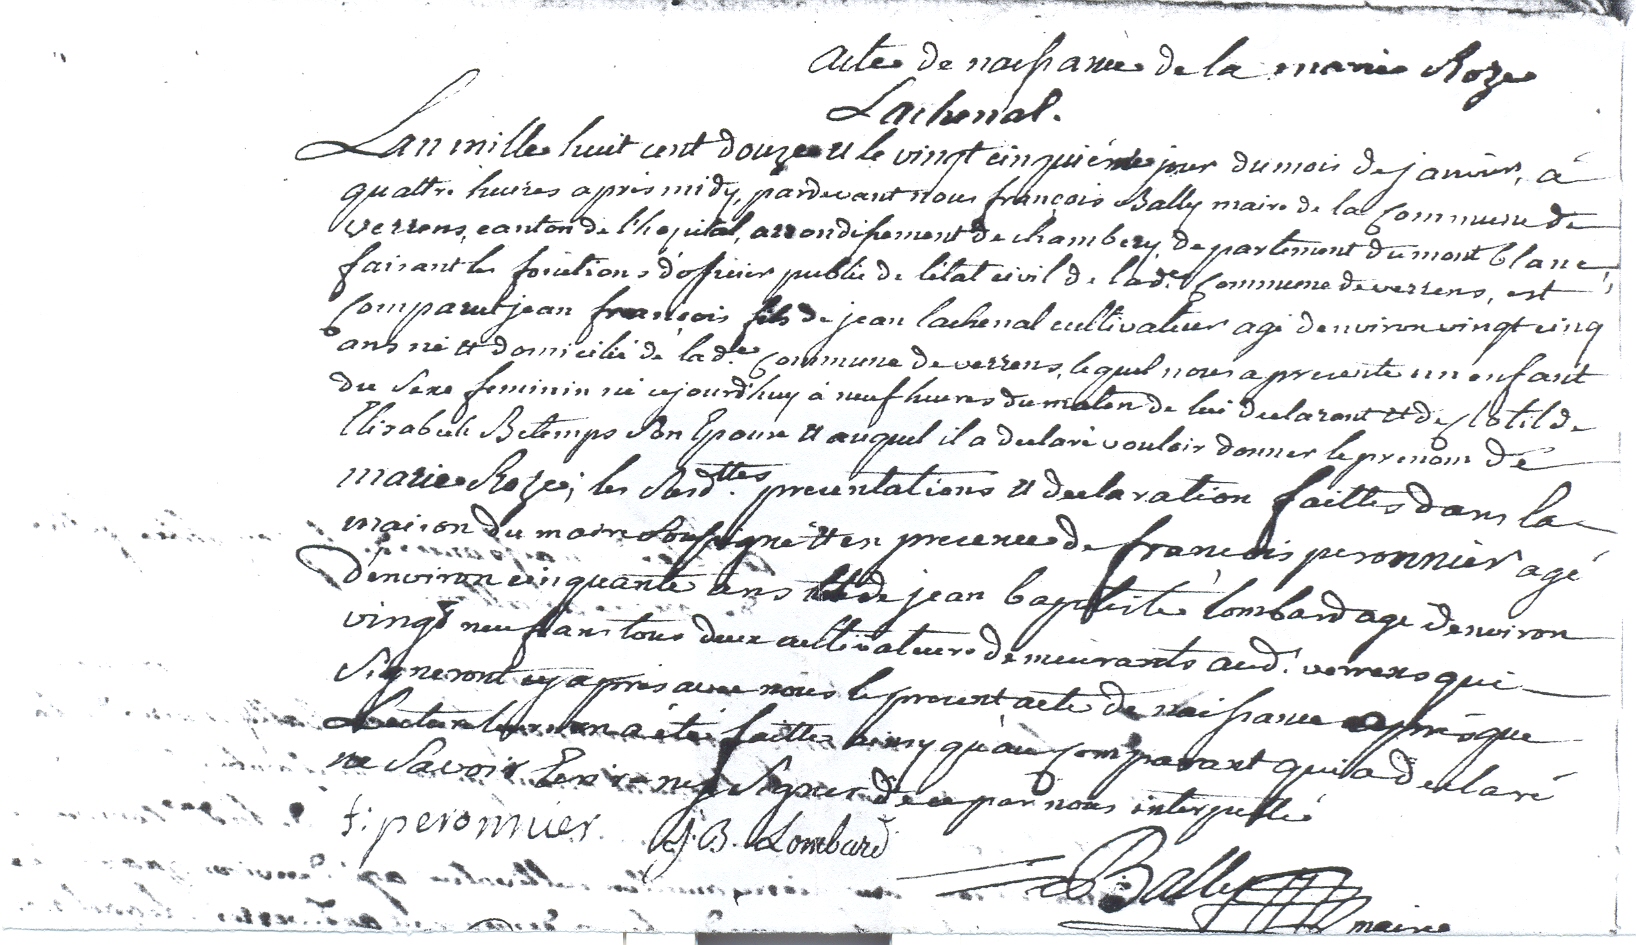 acte de naissance de la marie Roze
Lachenal.
Lan mille huit cent douze et le vingt cinquiéme jour du mois de janvier, á
quattre heures aprés midy, pardevant nous françois Bally maire de la Commune de
verrens, canton de l'hopital, arrondissement de chambery, departement du mont blanc,
faisant les fonctions d'officier public de l'état civil de lad.e Commune de verrens, est
Comparut jean françois fils de jean lachenal cultivateur agé denviron vingt cinq
ans né et domicilié de lad.e Commune de verrens, lequel nous a presenté un enfant
du Sexe feminin né cejourd'huy á neuf heures du matin de lui declarant et de Clotilde
Elisabeth Betemps Son Epouse et auquel il a declaré vouloir donner le prenom de
marie Roze; les Susd.ttes presentations et declaration faittes dans la
maison du maire Soussigné et en presence de françois peronnier agé
d'environ cinquante ans et de jean baptiste lombard agé d'environ
vingt neuf ans tous deux cultivateurs demeurants aud.t verrens qui
Signeront cy aprés avec nous le present acte de naissance aprés que
Lecture leur en a été faitte ainsy qu'au Comparant qui a declaré
ne Savoir Ecrire ny Signer de ce par nous interpellé
f: peronnier. J. B. Lombard
Bally
maire